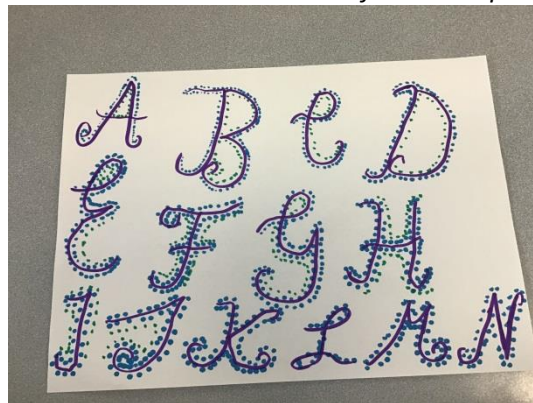 A B C D
E F G H
I J K L M N